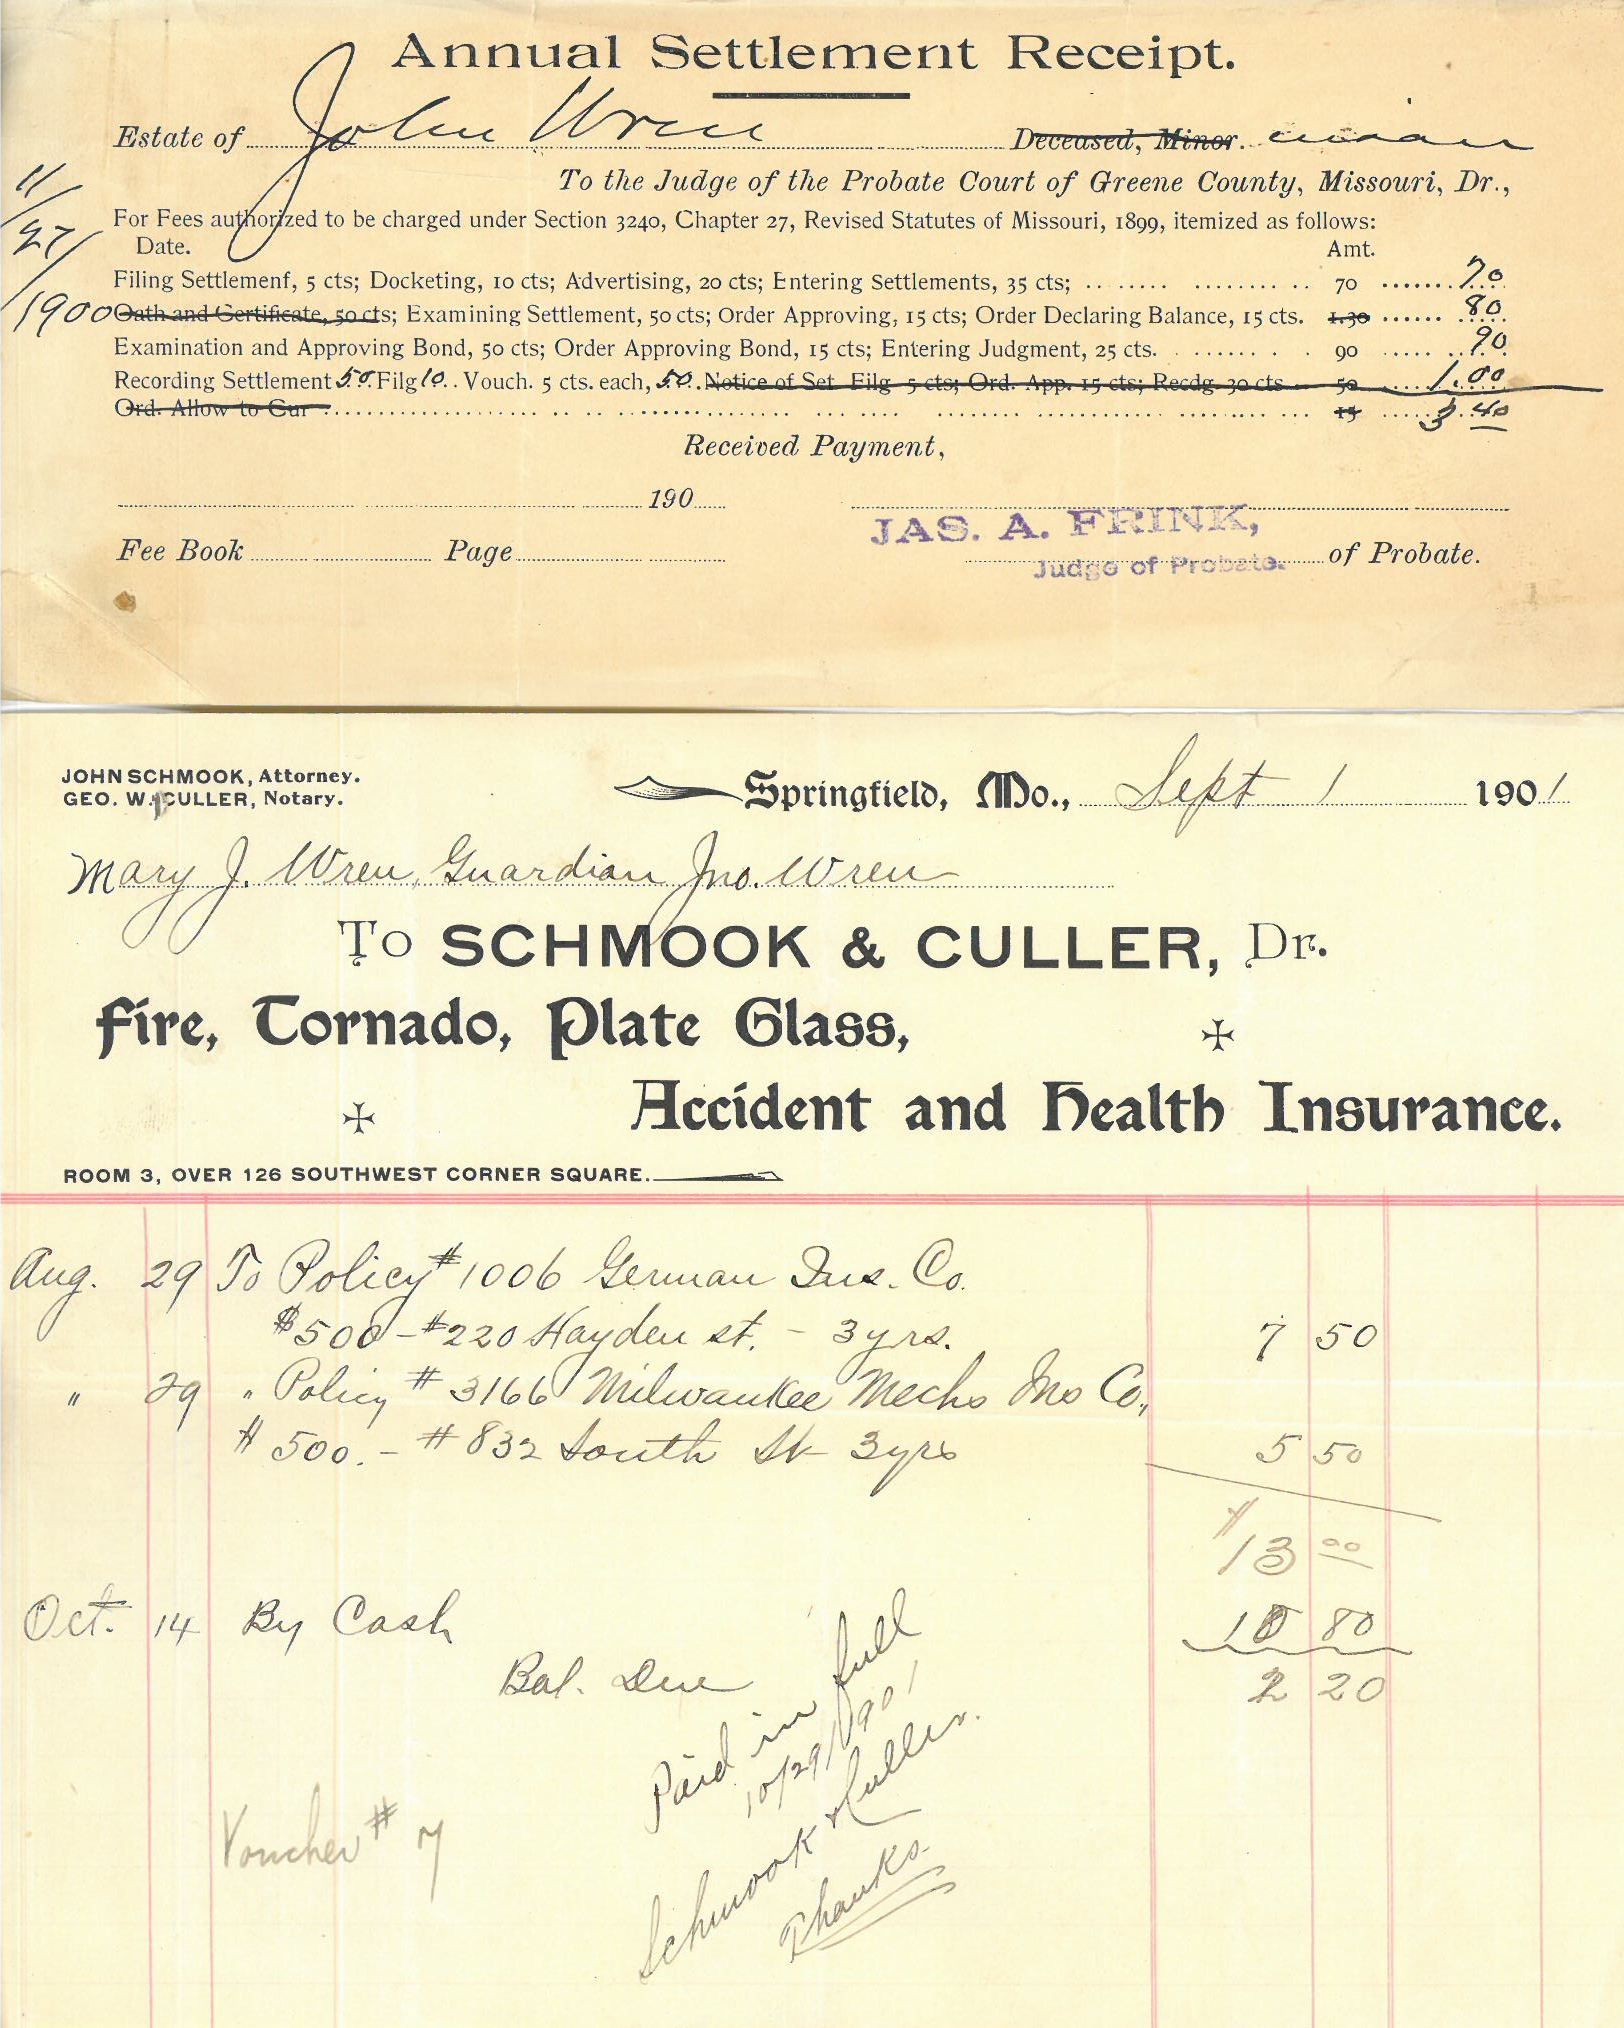 Annual Settlement Receipt.
Estate of John Wren Deceased, Minor.
To the Judge of the Probate Court of Greene County, Missouri, Dr.,
11/27/1900
For Fees authorized to be charged under Section 3240, Chapter 27, Revised Statutes of Missouri, 1899, itemized as follows:
Date. Amt.
Filing Settlemenf, 5 cts; Docketing, 10 cts; Advertising, 20 cts; Entering Settlements, 35 cts; 70 70
Oath and Certificate, 50 cts; Examining Settlement, 50 cts; Order Approving, 15 cts; Order Declaring Balance, 15 cts. 1.30 80
Examination and Approving Bond, 50 cts; Order Approving Bond, 15 cts; Entering Judgment, 25 cts. 90 90
Recording Settlement 50 Filg 10 Vouch. 5 cts. each, 50. Notice of Set. Filg. 5 cts; Ord. App. 15 cts; Recdg. 30 cts 50 1.00
Ord. Allow to Cur 15 3.40
Received Payment,
190
JAS. A. FRINK,
Fee Book Page Judge of Probate. of Probate.
JOHN SCHMOOK, Attorney.
GEO. W. CULLER, Notary.
Springfield, Mo., Sept 1 1901
Mary J. Wren, Guardian Jno. Wren
To SCHMOOK & CULLER, Dr.
Fire, Tornado, Plate Glass,
Accident and Health Insurance.
ROOM 3, OVER 126 SOUTHWEST CORNER SQUARE.
Aug. 29 To Policy # 1006 German Ins. Co.
$500 - #220 Hayden st. - 3 yrs. 7 50
" 29 " Policy # 3166 Milwaukee Mechs Ins Co.,
$ 500. - # 832 South St 3 yrs 5 50
$13 00
Oct. 14 By Cash 10 80
Bal. Due 2 20
Paid in full
10/29/1901
Schmook & Culler.
Thanks
Voucher # 7